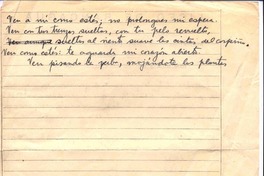 Ven a mi como estés; no prolongues mi espera.
Ven con tus trenzas sueltas, con tu pelo revuelto,
Ven aunque sueltas al viento suave las cintas del corpiño.
Ven como estés: te aguarda mi corazón abierto.
Ven pisando la yerba, mojándote las plantas